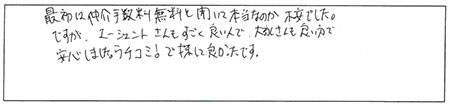 最初は仲介手数料無料と聞いて本当なのか不安でした。
ですが、エージェントさんもすごく良い人で、大家さんも良い方で
安心しました。クチコミで探して良かったです。